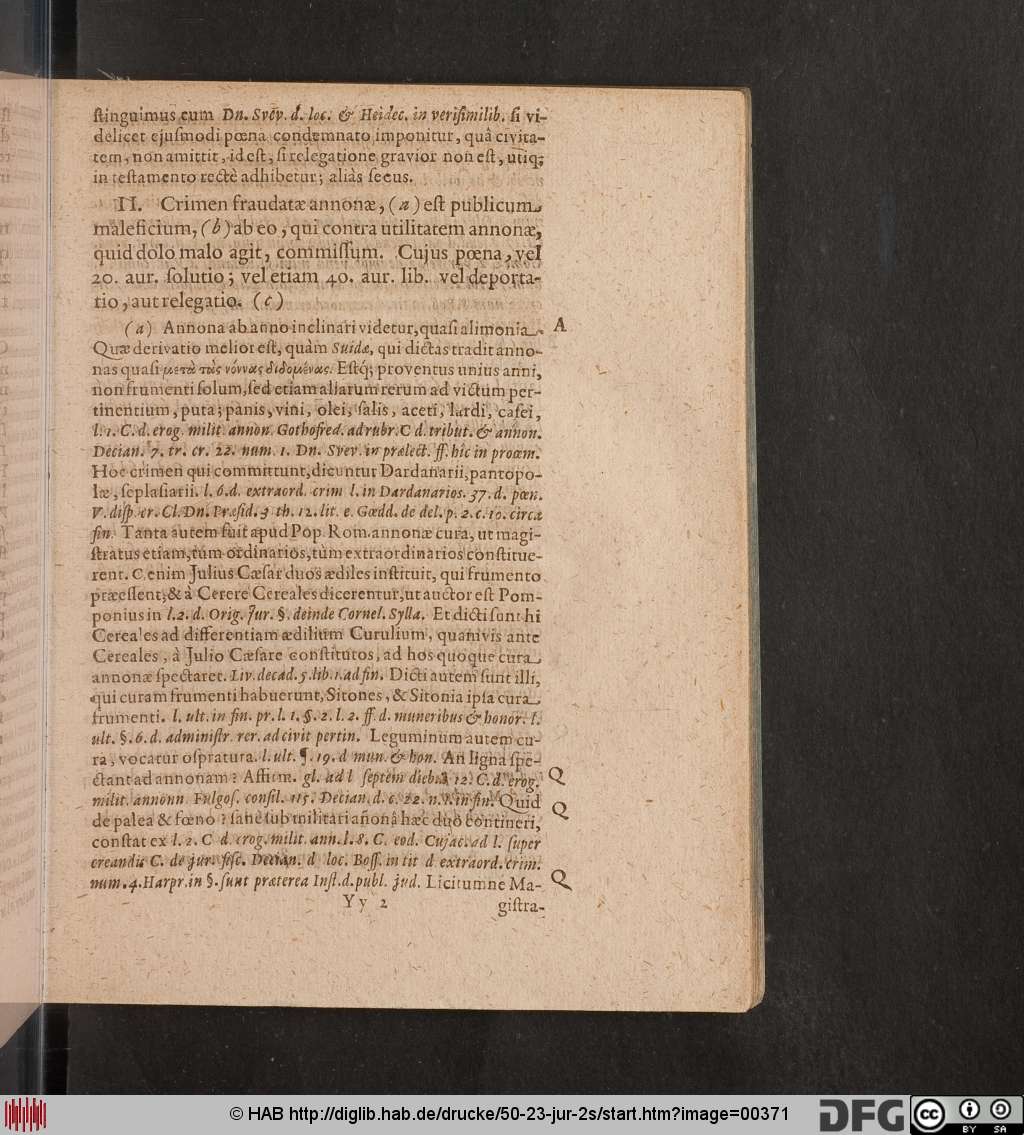 ſtinguimus cum Dn. Svev. d. loc. & Heidec. in veriſimilib. ſi vi-
delicet ejuſmodi pœna condemnato imponitur, quâ civita-
tem, non amittit, id eſt, ſi relegatione gravior non eſt, utiq;
in teſtamento rectè adhibetur; aliàs ſecus.
II. Crimen fraudatæ annonæ, (a) eſt publicum
maleficium, (b) ab eo, qui contra utilitatem annonæ,
quid dolo malo agit, commiſſum. Cujus pœna, vel
20. aur. ſolutio; vel etiam 40. aur. lib. vel deporta-
tio, aut relegatio. (c)
(a) Annona ab anno inclinari videtur, quaſi alimonia. A
Quæ derivatio melior eſt, quàm Suidæ, qui dictas tradit anno-
nas quaſi μετὰ τὰς νόννας διδομένας. Eſtq́; proventus unius anni,
non frumenti ſolum, ſed etiam aliarum rerum ad victum per-
tinentium, puta; panis, vini, olei, ſalis, aceti, lardi, caſei,
l. 1. C. d. erog. milit. annon. Gothofred. ad rubr. C d. tribut. & annon.
Decian. 7. tr. cr. 22. num. 1. Dn. Svev. in prælect. ff. hîc in proœm.
Hoc crimen qui committunt, dicuntur Dardanarii, pantopo-
læ, ſeplaſiarii. l. 6. d. extraord. crim l. in Dardanarios. 37. d. pœn.
V. diſp. cr. Cl. Dn. Præſid. 3 th. 12. lit. e. Gœdd. de del. p. 2. c. 10. circa
fin. Tanta autem fuit apud Pop. Rom. annonæ cura, ut magi-
ſtratus etiam, tùm ordinarios, tùm extraordinarios conſtitue-
rent. C. enim Julius Cæſar duos ædiles inſtituit, qui frumento
præeſſent, & à Cerere Cereales dicerentur, ut auctor eſt Pom-
ponius in l. 2. d. Orig. Jur. §. deinde Cornel. Sylla. Et dicti ſunt hi
Cereales ad differentiam ædilium Curulium, quamvis ante
Cereales, à Julio Cæſare conſtitutos, ad hos quoque cura
annonæ ſpectaret. Liv. decad. 5. lib. 1. ad fin. Dicti autem ſunt illi,
qui curam frumenti habuerunt, Sitones, & Sitonia ipſa cura
frumenti. l. ult. in fin. pr. l. 1. §. 2. l. 2. ff. d. muneribus & honor. l.
ult. §. 6. d. adminiſtr. rer. ad civit pertin. Leguminum autem cu-
ra, vocatur oſpratura. l. ult. ¶. 19. d mun. & hon. An ligna ſpe-
ctant ad annonam? Affirm. gl. ad l ſeptem dieb. 12. C. d. erog. Q
milit. annonn Fulgoſ. conſil. 115. Decian. d. c. 22. n. 1. in fin. Quid
de palea & fœno? ſanè ſub militari añonâ hæc duo contineri, Q
conſtat ex l. 2. C d. erog. milit. ann. l. 8. C. eod. Cujac. ad l. ſuper
creandis C. de jur. fiſc. Decian. d loc. Boſſ. in tit d extraord. crim.
num. 4. Harpr. in §. ſunt præterea Inſt. d. publ. jud. Licitumne Ma- Q
Yy 2 giſtra-
© HAB http://diglib.hab.de/drucke/50-23-jur-2s/start.htm?image=00371 DFG cc BY SA